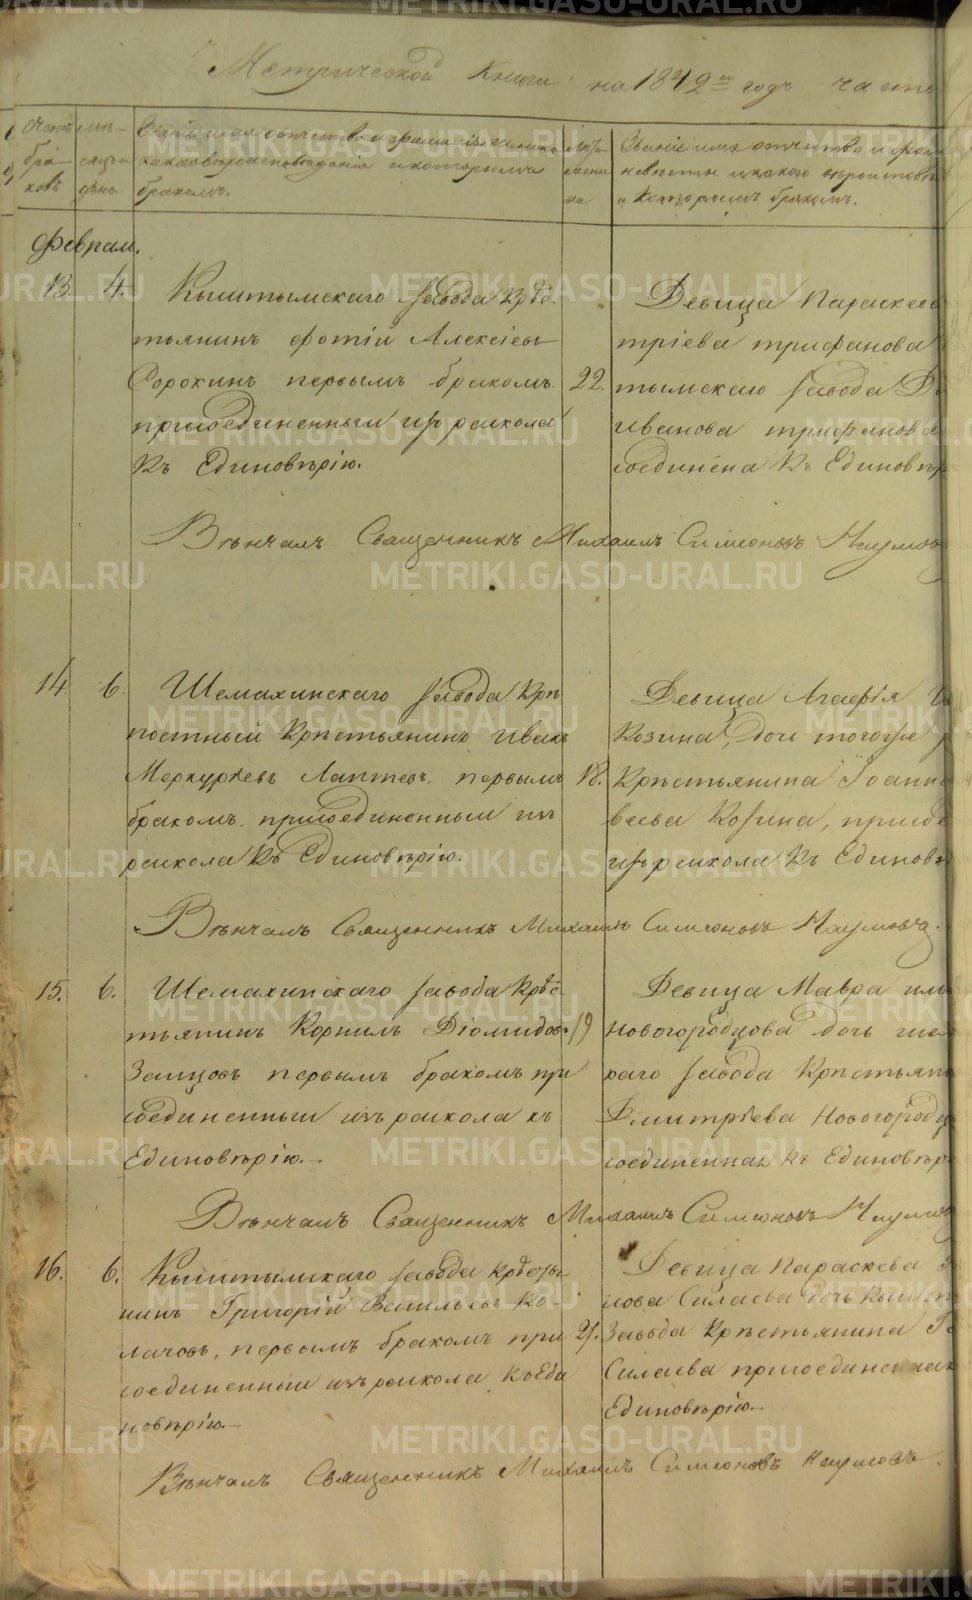 Метрической Книги на 1842 й годъ часть
Счетъ бра-ковъ
мѣ-сяцъ и день
Званіе имя отчество и фамилія жениха
какого вѣроисповѣданія и которымъ
бракомъ.
лѣта жени-ха
Званіе имя отчество и фам
невѣсты и какого вѣроисповѣ
и которымъ бракомъ.
Февраль.
13. 4. Кыштымскаго завода крѣс-
тьянинъ Фотій Алексіевъ
Сорокинъ первымъ бракомъ
присоединенный изъ раскола
къ Единовѣрію.
22.
Девица Параскев
тріева Трифанова
тымскаго завода Д
Иванова Трифанова
соединена къ Единовѣр
Вѣнчалъ Священникъ Михаилъ Симеоновъ Наумовъ
14 6. Шемахинскаго завода Крѣ
постный Крѣстьянинъ Иванъ
Меркуріевъ Лаптевъ первымъ
бракомъ присоединенный изъ
раскола къ Единовѣрію.
18.
Девица Агафія
Козина, дочь тогоже
Крѣстьянина Іоанна
веева Козина, присое
изъ раскола къ Единов
Вѣнчалъ Священникъ Михаилъ Симеоновъ Наумовъ.
15. 6. Шемахинскаго завода Крѣс-
тьянинъ Корнилъ Діомидов
Заицовъ первымъ бракомъ при
соединенный изъ раскола къ
Единовѣрію.
19
Девица Мавра
Новогородцова дочь ше
скаго завода Крѣстьян
Дмитріева Новогородц
соединенная къ Единовѣр
Вѣнчалъ Священникъ Михаилъ Симеоновъ Наумовъ
16. 6. Кыштымскаго завода крѣстья
нинъ Григорій Васильевъ Ко-
лачовъ, первымъ бракомъ при
соединенный изъ раскола къ Еди
новѣрію.
21.
Девица Параскева
лова Силаева дочь Кышт
завода Крѣстьянина
Силаева присоединенная
Единовѣрію.
Вѣнчалъ Священникъ Михаилъ Симеоновъ Наумовъ.
METRIKI.GASO-URAL.RU